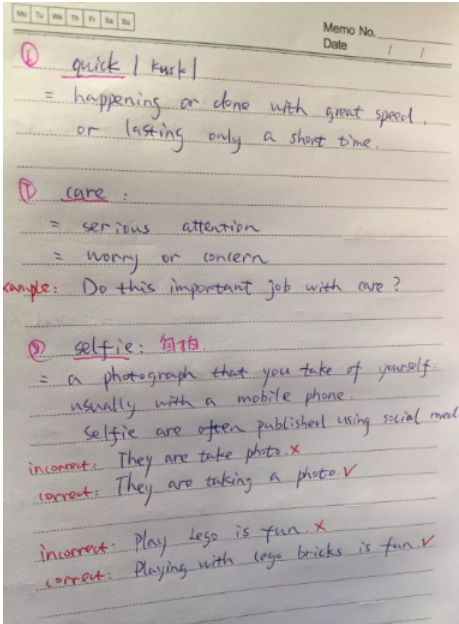 Mo Tu We Th Fr Sa Su
Memo No.
Date / /
quick / kwɪk /
= happening or done with great speed,
or lasting only a short time.
care :
= serious attention
= worry or concern
xample: Do this important job with care?
selfie: 自拍
= a photograph that you take of yourself.
usually with a mobile phone.
selfie are often published using social med
incorrect: They are take photo. x
correct: They are taking a photo. √
incorrect: Play Lego is fun. x
correct: Playing with lego bricks is fun. √